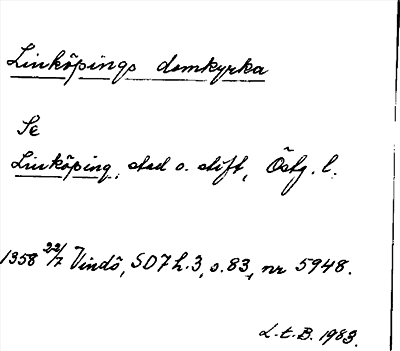 Linköpings domkyrka
Se
Linköping, stad o. stift, Östg. l.
1358 22/7 Vindö, SD 7 h. 3, s. 83, nr 5948.
L.t.B. 1983.